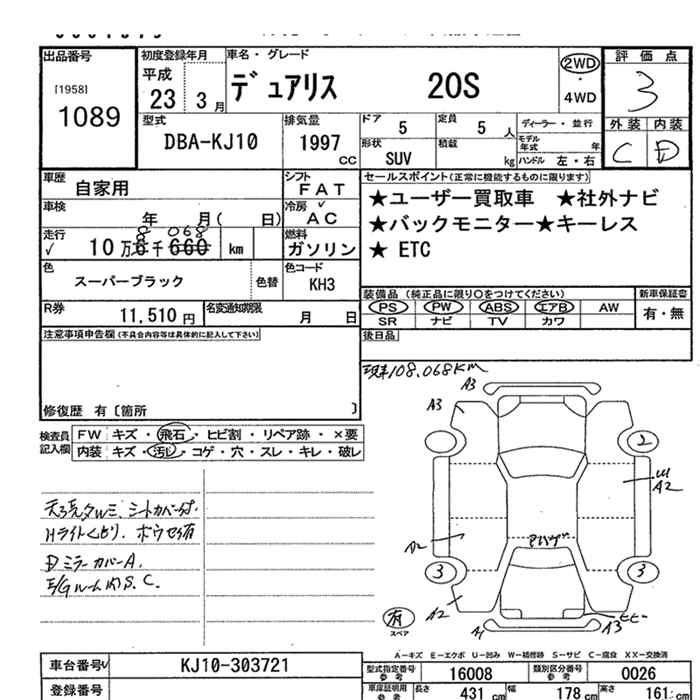 出品番号 初度登録年月 車名・グレード 評価点
[1958] 平成 デュアリス 20S 2WD ・ 4WD 3
1089 23年 3月
外装 内装
C D
型式 排気量 ドア 5 定員 5人 ディーラー・並行
DBA-KJ10 1997cc 形状 SUV 積載 kg モデル年式 年
ハンドル 左・右
車歴 自家用 シフト FAT セールスポイント(正常に機能するものに限ります)
車検 年 月( 日) 冷房 AC ★ユーザー買取車 ★社外ナビ
走行 √ 10万8千068 660 km 燃料 ガソリン ★バックモニター★キーレス
★ ETC
色 スーパーブラック 色替 色コード KH3
装備品(純正品に限り○をつけてください) 新車保証書
R券 11,510円 名変通知期限 月 日 PS PW ABS エアB AW 有・無
SR ナビ TV カワ
注意事項申告欄(不具合内容等は具体的に記入して下さい) 後日品
現車108.068KM
修復歴 有〔箇所 〕
検査員記入欄 FW キズ・飛石・ヒビ割・リペア跡・×要
内装 キズ・汚レ・コゲ・穴・スレ・キレ・破レ
A3
A3
2
A2
シートカバー付.
Hライトくもり. ホウセキ有
Dミラーカバー A.
E/Gルーム内 S.C.
A2
アハゲ
3
3
A2
有
スペア
A1
A3
ヒビ
A-キズ E-エクボ U-凹み W-補修跡 S-サビ C-腐食 XX-交換済
車台番号 KJ10-303721 型式指定番号 参考 16008 類別区分番号 参考 0026
登録番号 車庫証明用 参考 長さ 431cm 幅 178cm 高さ 161cm